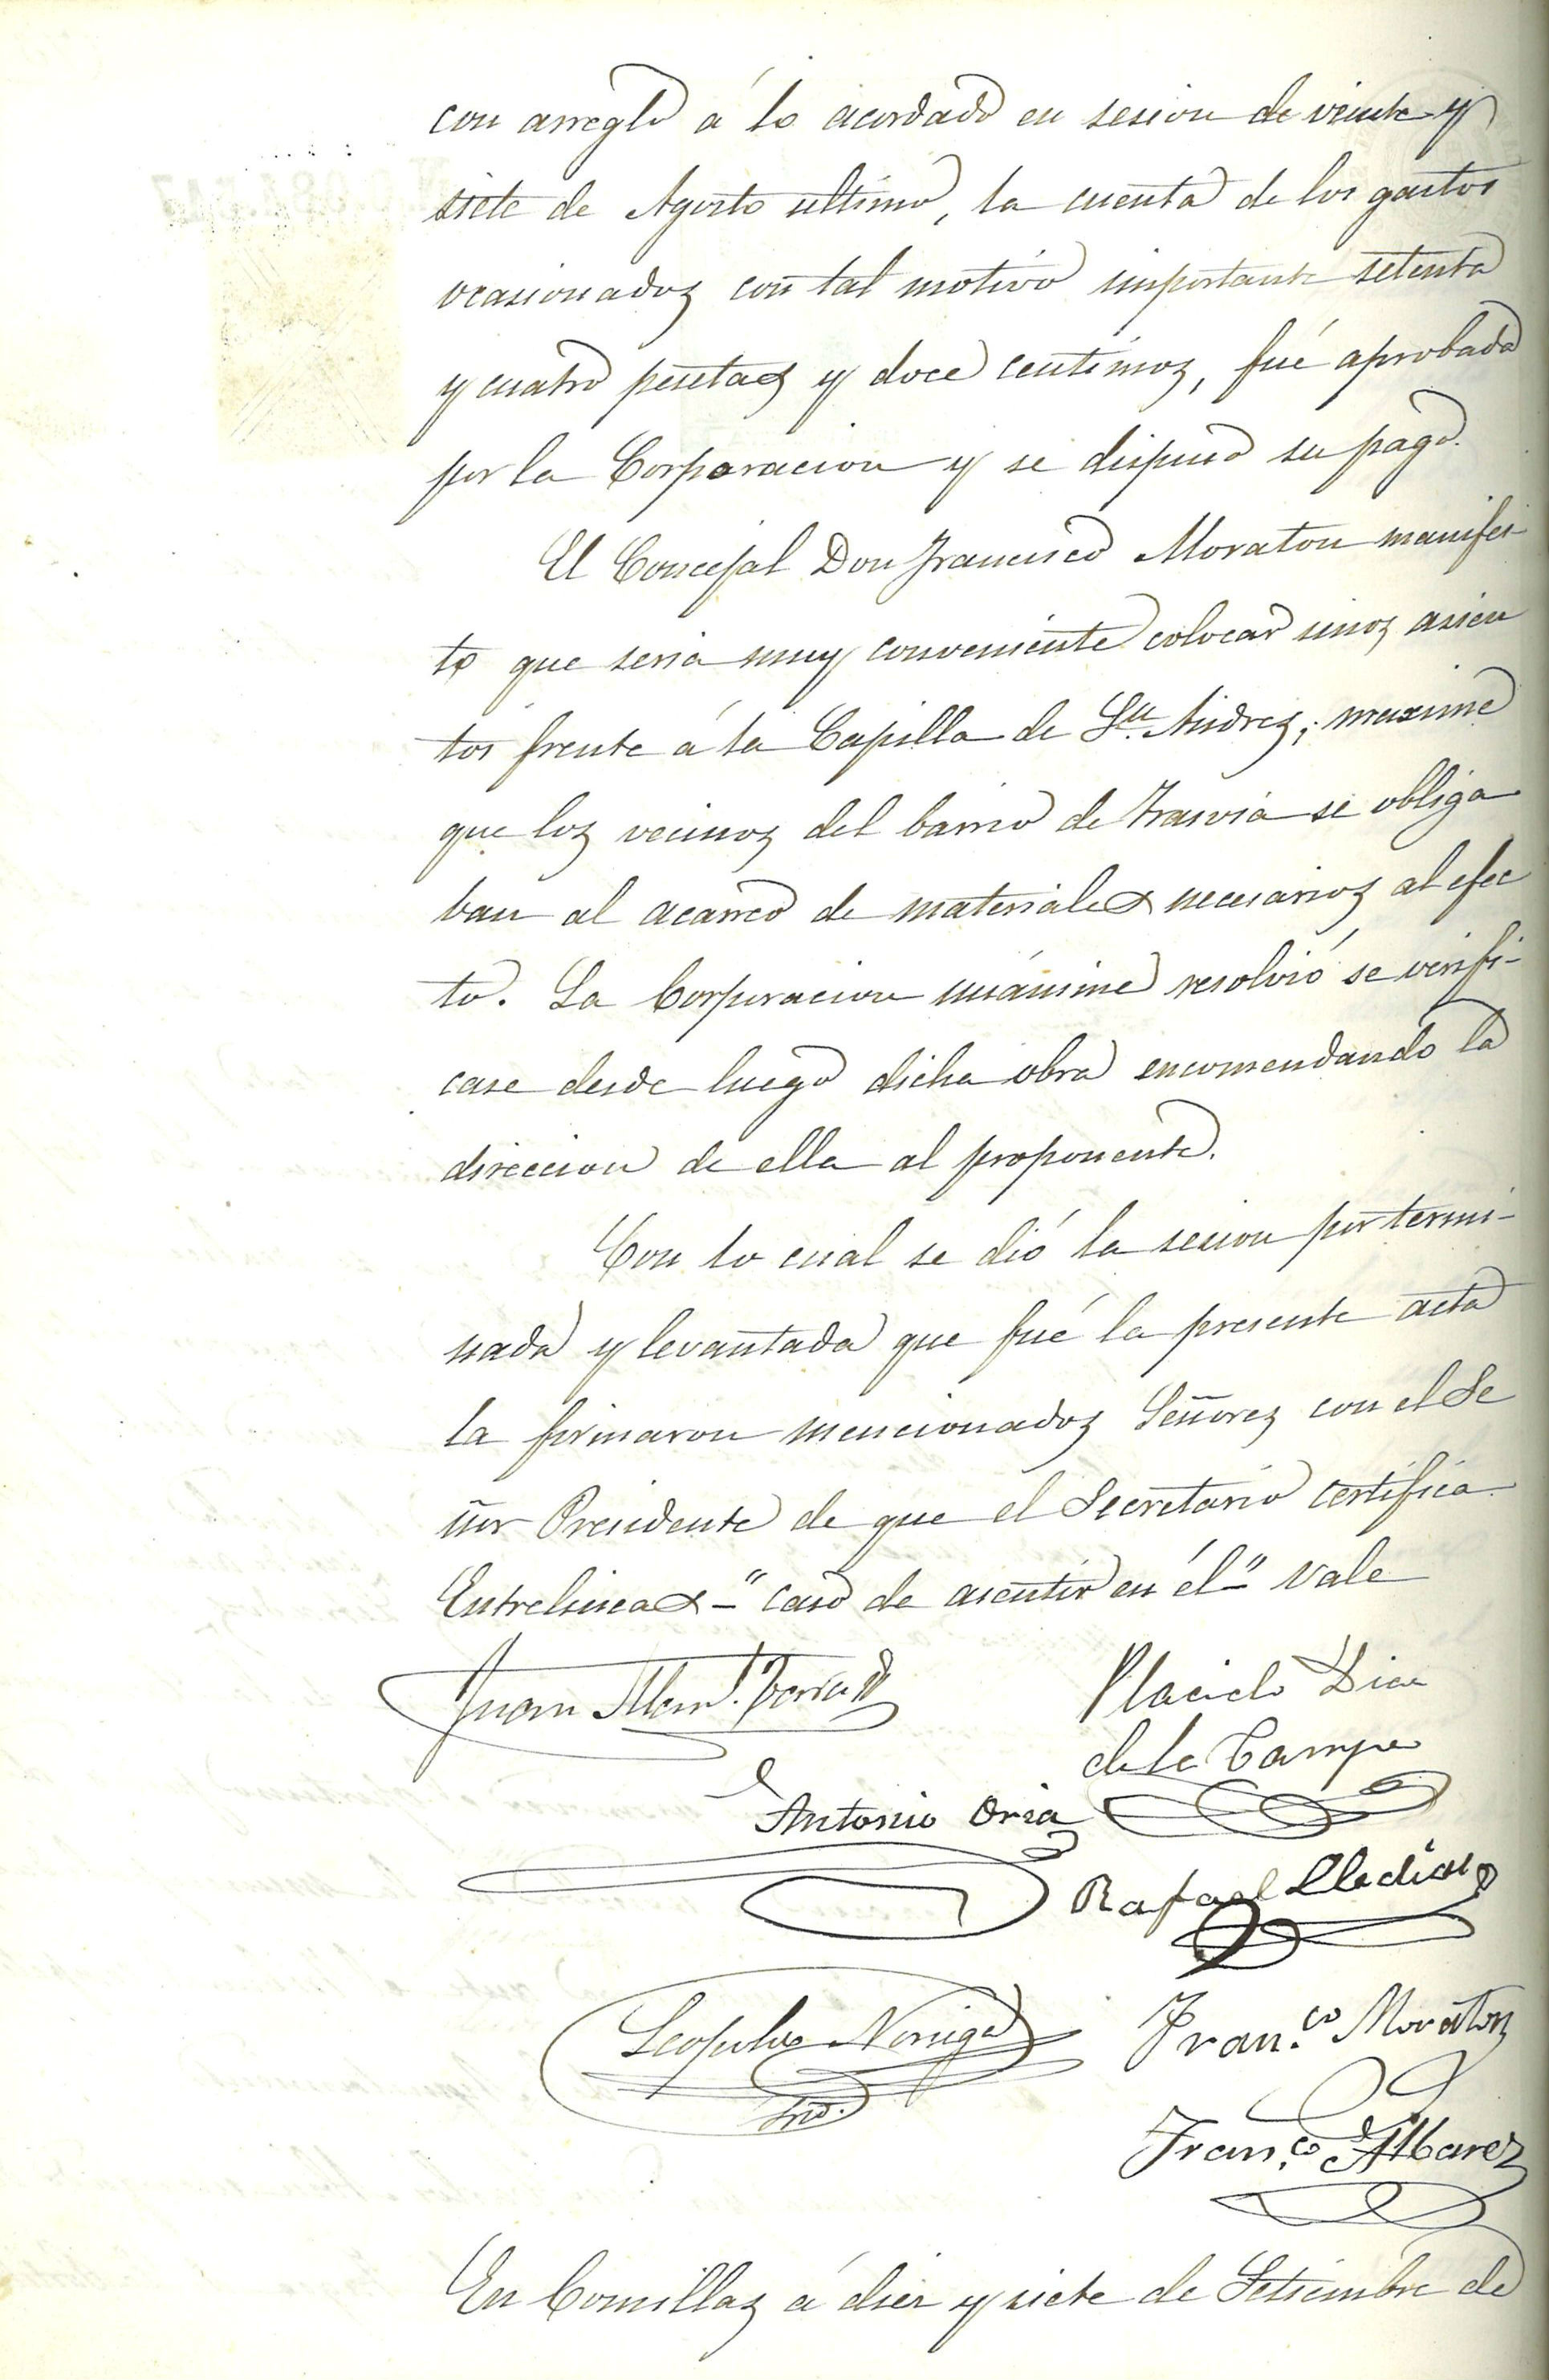 con arreglo á lo acordado en sesion de veinte y
siete de Agosto ultimo, la cuenta de los gastos
ocasionados con tal motivo importante setenta
y cuatro pesetas y doce centimos, fué aprobada
por la Corporacion y se dispuso su pago.
El Concejal Don Francisco Moraton manifes-
to que seria muy conveniente colocar unos asien
tos frente á la Capilla de Sn. Andres; maxime
que los vecinos del barrio de Trasvia se obliga
ban al acarreo de materiales necesarios al efec
to. La Corporacion unánime resolvió se verifi-
case desde luego dicha obra encomendando la
direccion de ella al proponente.
Con lo cual se dió la sesion por termi-
nada y levantada que fué la presente acta
la firmaron mencionados Señores con el Se
ñor Presidente de que el Secretario certifica
Entrelineas - "caso de asentir en él" - Vale
Juan
Placido Diaz
de la Campa
Antonio Oria
Rafael
Leopoldo Noriega
Fran.co Moraton
Srio.
Fran.co Albarez
En Comillas á diez y siete de Setiembre de